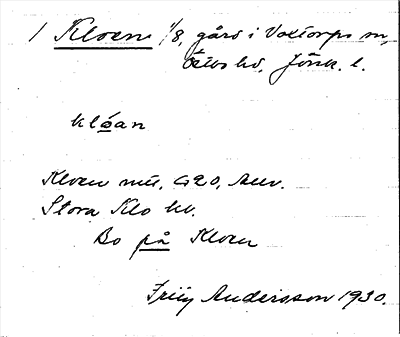 1 Kloen 1/8, gård i Voxtorps sn,
Östbo hd, Jönk. l.
klóan
Kloen mtl, G20, Auv.
Stora Klo hv.
Bo på Kloen
Friiz Andersson 1930.